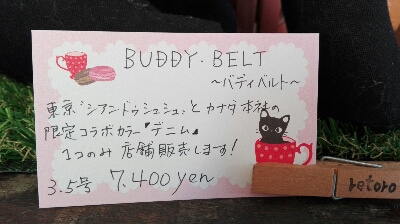 BUDDY・BELT
～バディベルト～
東京「シアンドゥシュシュ」と カナダ本社の
限定コラボカラー『デニム』
1つのみ 店舗販売します!
3.5号 7,400yen
retoro